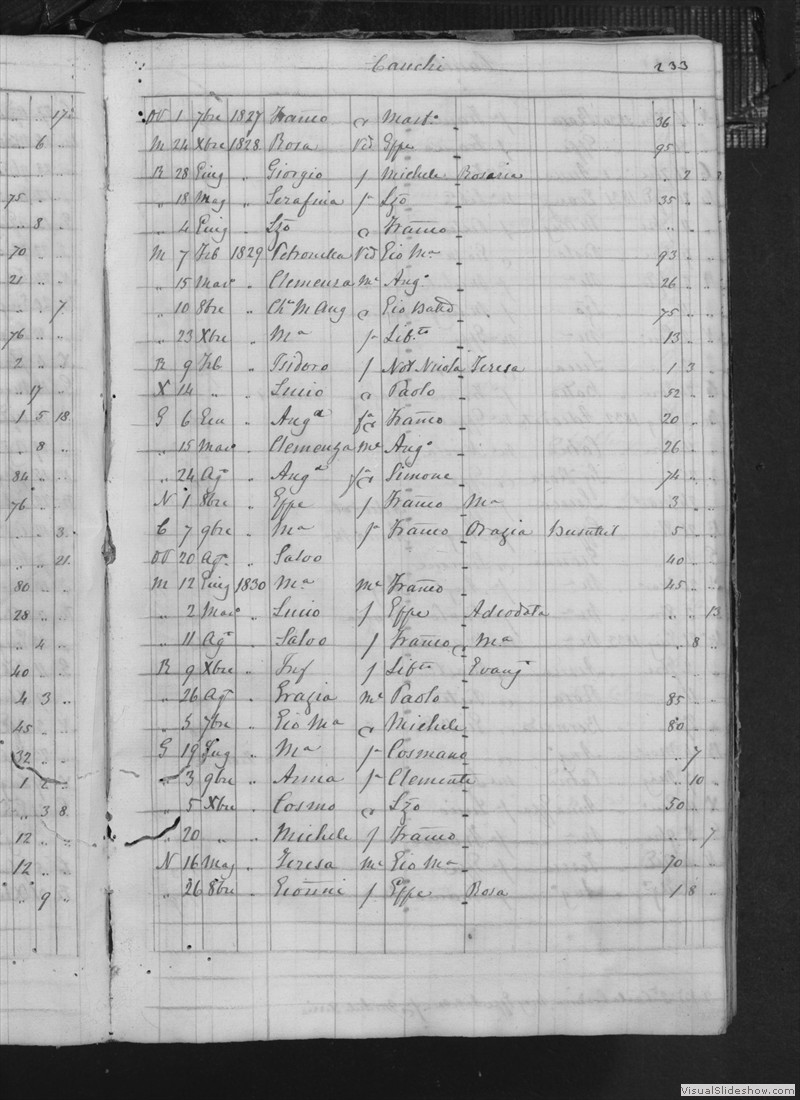 17
6
75
8
70
21
7
76
2
17
1 5 18
8
84
76
3
21
80
28
4
40
4 3
45
32
1 2
3 8
12
12
9
Cauchi 233
1 7bre 1827 Franco Mast. 36
M 24 Xbre 1828 Rosa Vid Gppe 95
R 28 Giug " Giorgio f Michele Rosaria " 2 2
" 18 Mag " Serafina fa Lzo 35
" 4 Giug " Lzo a Franco
M 7 Feb 1829 Petronilla Vid Gio Ma 93
" 15 Mar " Clemenza Me Ango 26
" 10 8bre " Ch M Ang a Gio Batta 75
" 23 Xbre " Ma fa Libto 13
R 9 Feb " Isidoro f Not Nicola Teresa 1 3
X 14 " " Lucio a Paolo 52
G 6 Gen " Anga fa Franco 20
" 15 Mar " Clemenza Me Ango 26
" 24 Ago " Anga Simone 74
N 1 8bre " Gppe f Franco Ma 3
C 7 9bre " Ma fa Franco Orazia Busuttil 5
20 Ago " Salvo 40
M 12 Giug 1830 Ma Me Franco 45
" 2 Mar " Lucio f Gppe Adeodata " " 13
" 11 Ago " Salvo f Franco Ma " 8
R 9 Xbre " Inf f Libto Evang
" 26 Ago " Grazia Me Paolo 85
" 5 7bre " Gio Ma a Michele 80
G 19 Lug " Ma fa Cosmano " 7
" 3 9bre " Anna fa Clemente " 10
" 5 Xbre " Cosmo a Lzo 50
" 20 " " Michele f Franco " " 7
N 16 Mag " Teresa Me Gio Ma 70
" 26 8bre " Gionni f Gppe Rosa 1 8
VisualSlideshow.com